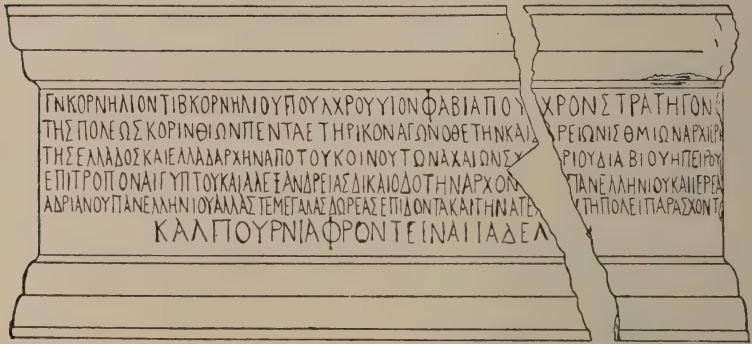 ΓΝΚΟΡΝΗΛΙΟΝΤΙΒΚΟΡΝΗΛΙΟΥΠΟΥΛΧΡΟΥΥΙΟΝΦΑΒΙΑΠΟΥ ΧΡΟΝΣΤΡΑΤΗΓΟΝ
ΤΗΣΠΟΛΕΩΣΚΟΡΙΝΘΙΩΝΠΕΝΤΑΕΤΗΡΙΚΟΝΑΓΩΝΟΘΕΤΗΝΚΑΙ ΡΕΙΩΝΙΣΘΜΙΩΝΑΡΧΙΕΡ
ΤΗΣΕΛΛΑΔΟΣΚΑΙΕΛΛΑΔΑΡΧΗΝΑΠΟΤΟΥΚΟΙΝΟΥΤΩΝΑΧΑΙΩΝΣΥ ΡΙΟΥΔΙΑΒΙΟΥΗΠΕΙΡΟΥ
ΕΠΙΤΡΟΠΟΝΑΙΓΥΠΤΟΥΚΑΙΑΛΕΞΑΝΔΡΕΙΑΣΔΙΚΑΙΟΔΟΤΗΝΑΡΧΟΝ ΠΑΝΕΛΛΗΝΙΟΥΚΑΙΙΕΡΕΑ
ΑΔΡΙΑΝΟΥΠΑΝΕΛΛΗΝΙΟΥΑΛΛΑΣΤΕΜΕΓΑΛΑΣΔΩΡΕΑΣΕΠΙΔΟΝΤΑΚΑΙΤΗΝΑΤΕΛ ΤΗΠΟΛΕΙΠΑΡΑΣΧΟΝΤ
ΚΑΛΠΟΥΡΝΙΑΦΡΟΝΤΕΙΝΑΗΑΔΕΛ